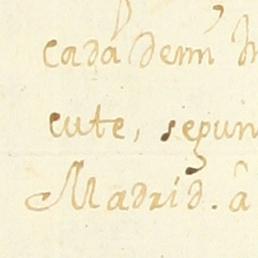 cada
cute, segun
Madrid. â